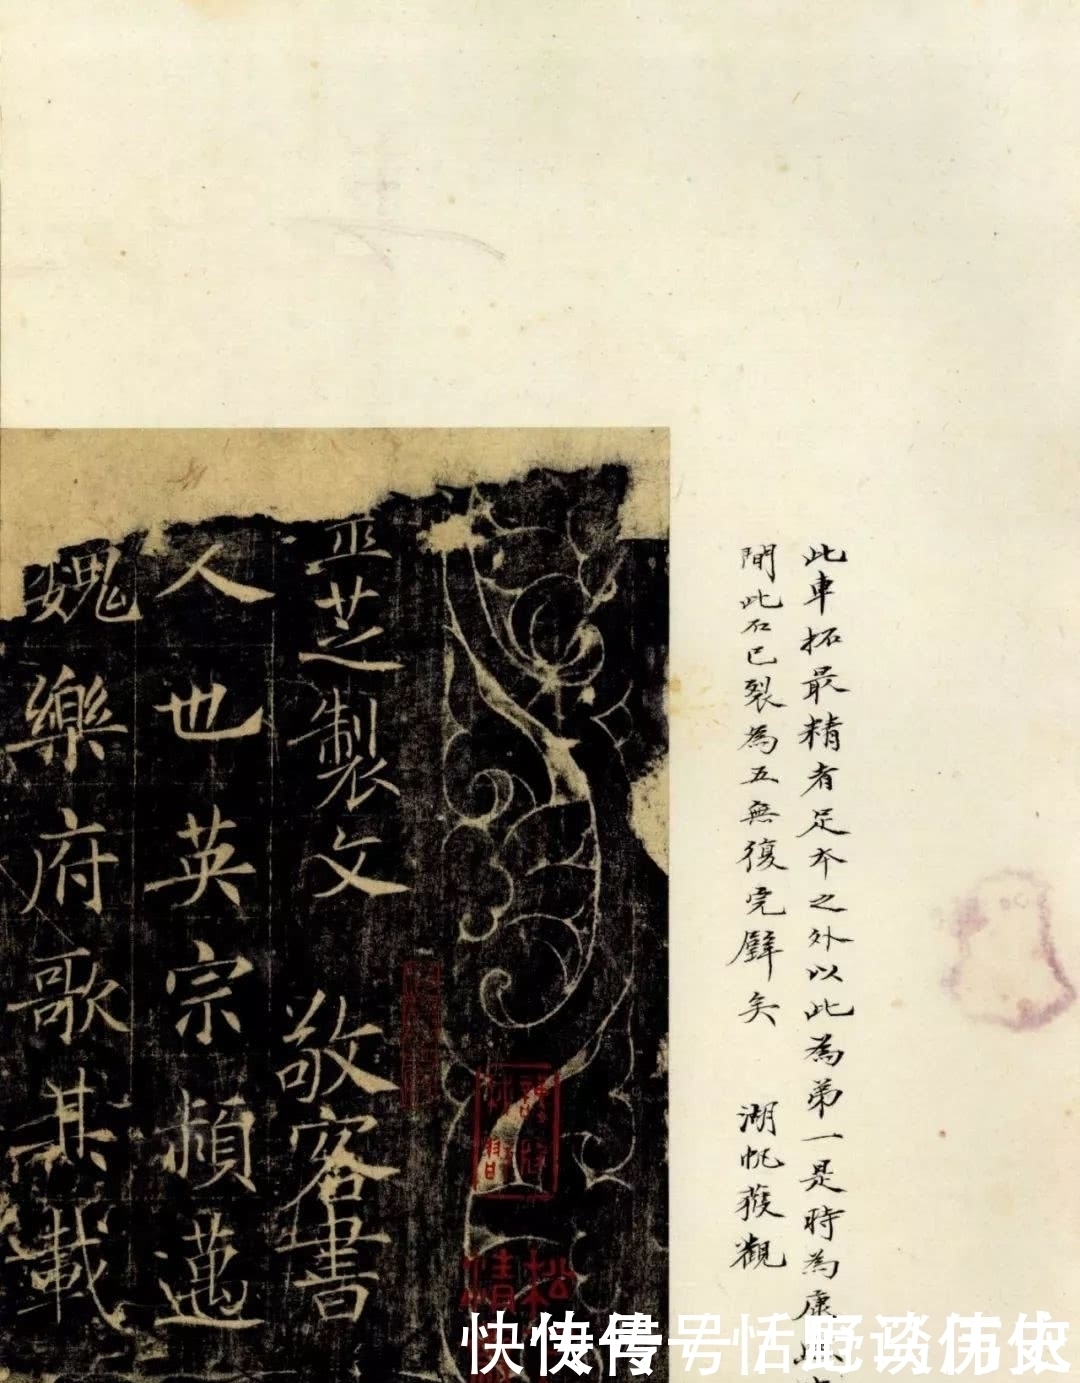 此車拓最精者足本之外以此為弟一是時為康
間此石已裂為五無復完璧矣 湖帆獲觀
芝製文 敬客書
人也英宗頴邁
魏樂府歌其載
快传号